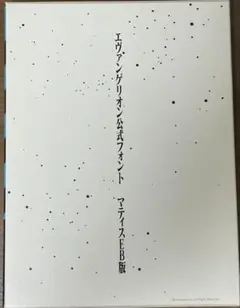 エヴァンゲリオン公式フォント　マティスEB版